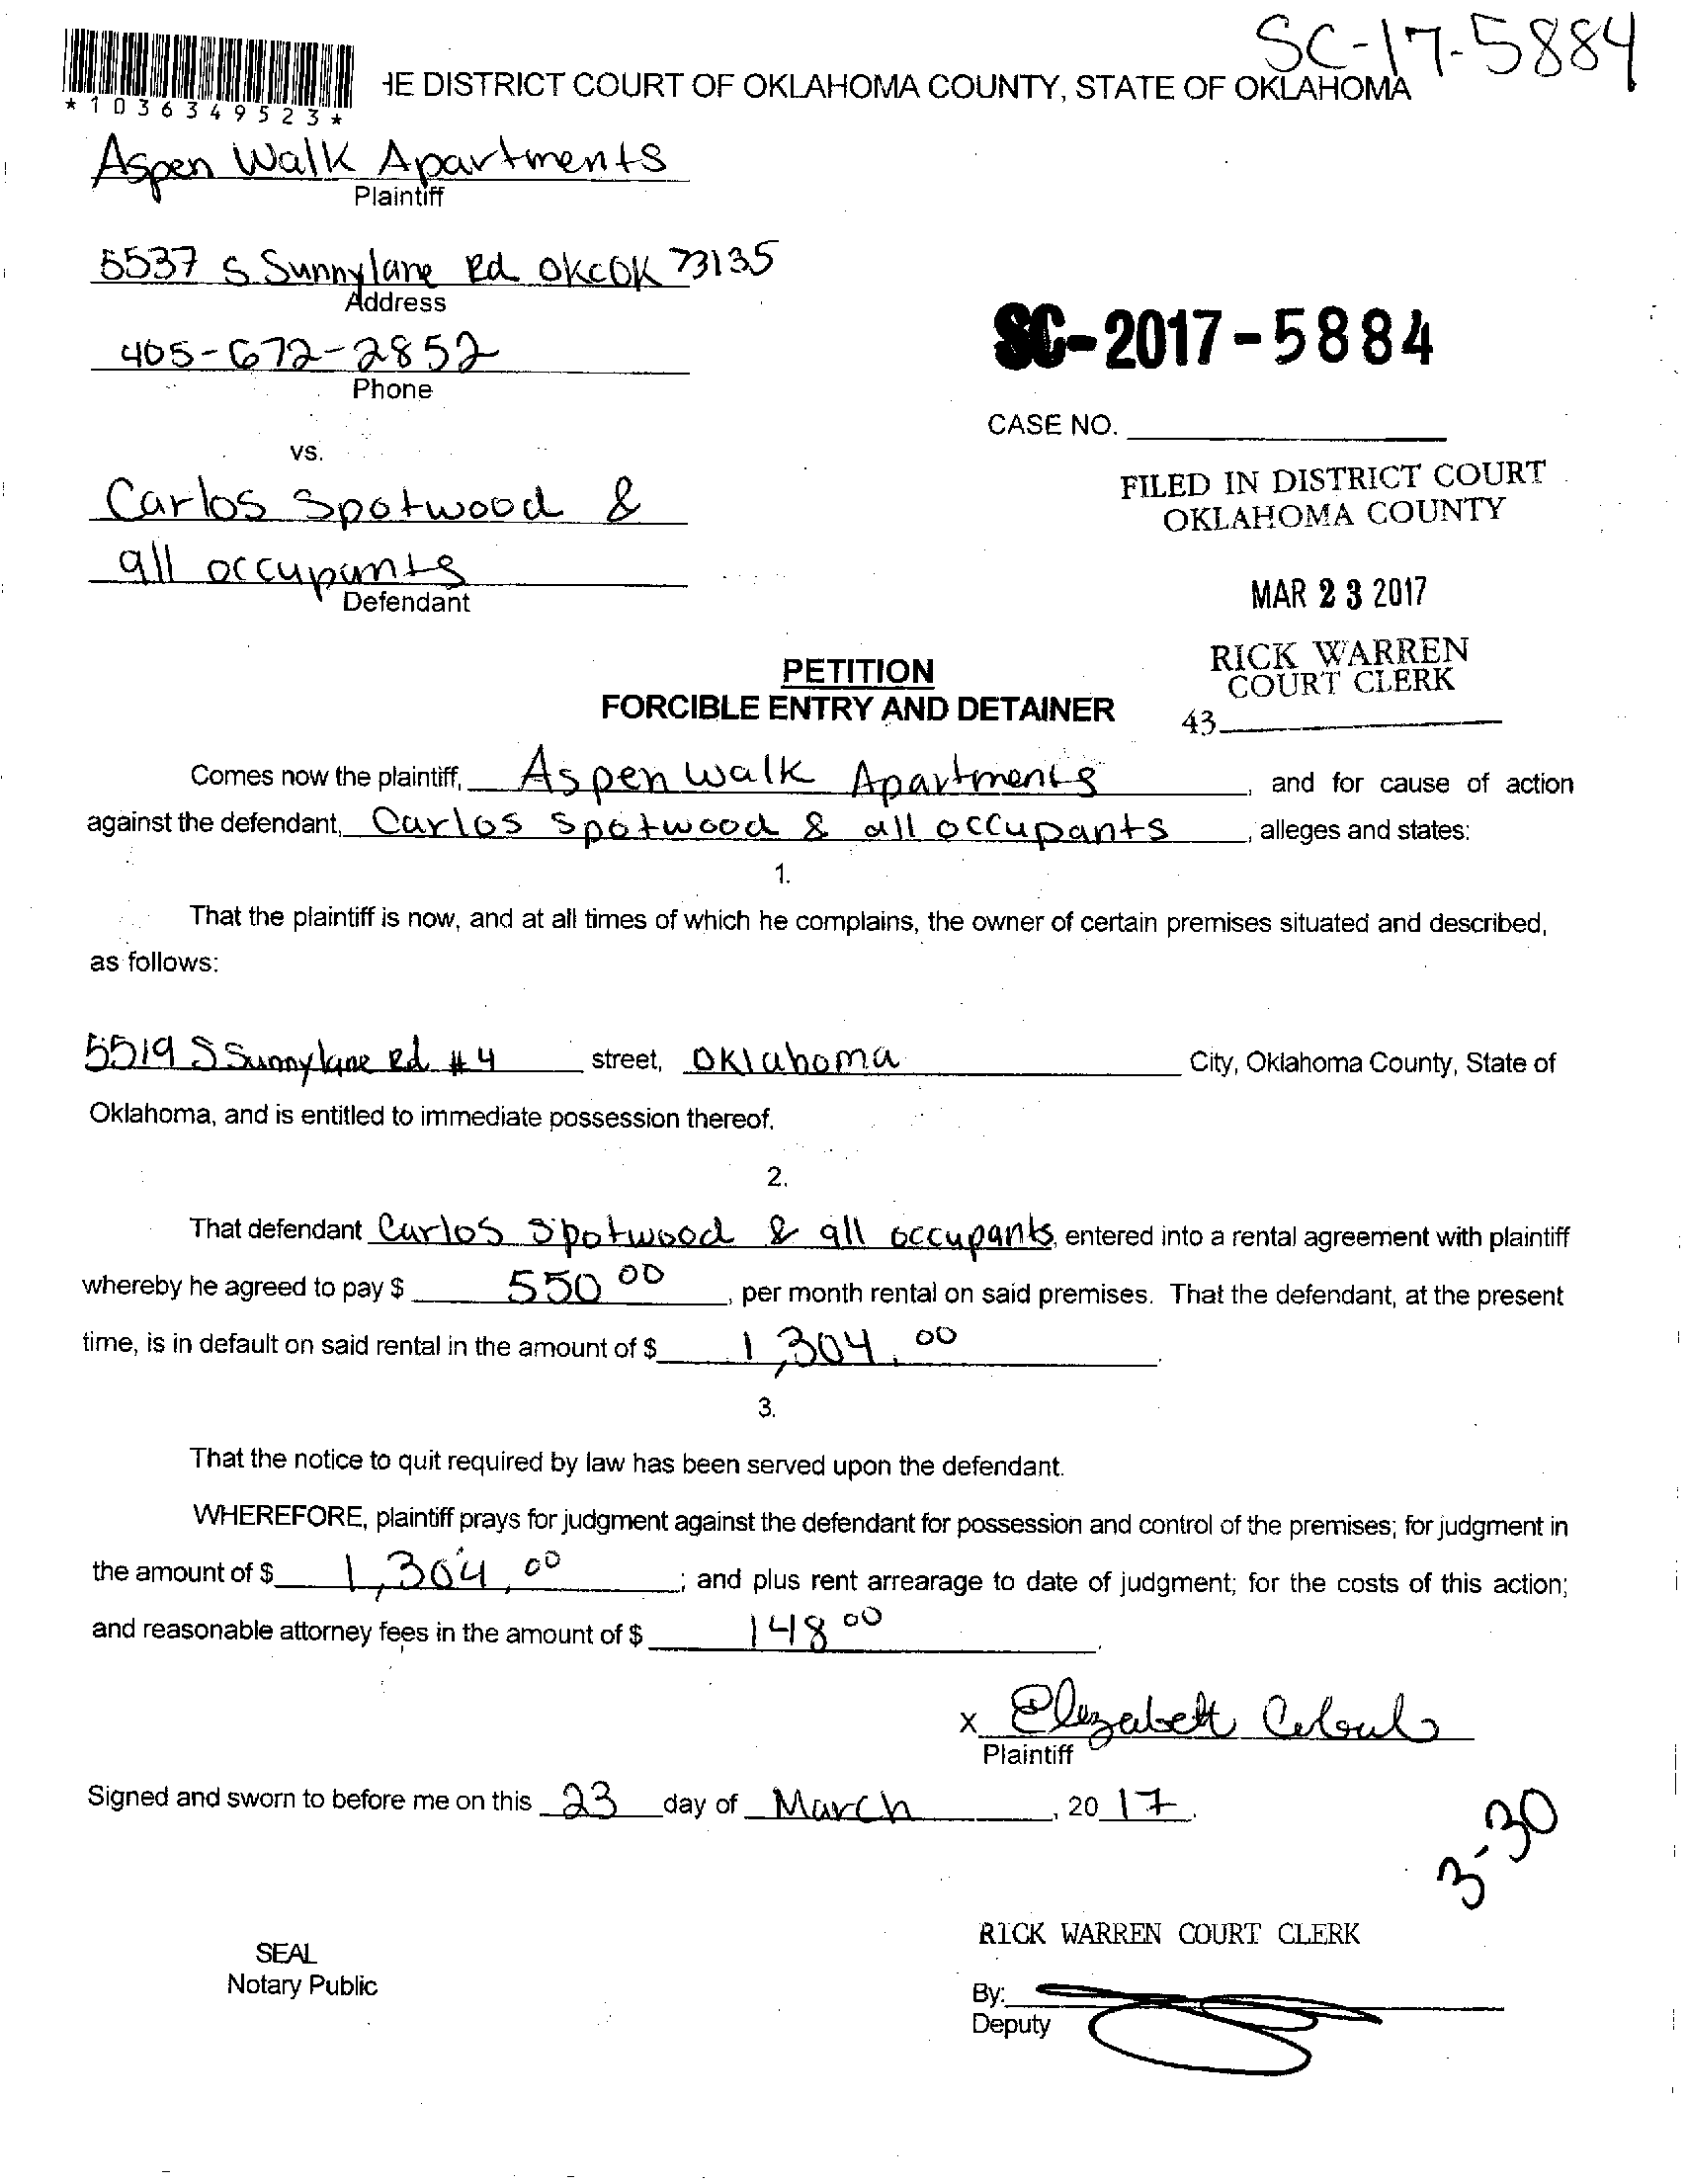 SC-17-5884
HE DISTRICT COURT OF OKLAHOMA COUNTY, STATE OF OKLAHOMA
*1036349523*
Aspen Walk Apartments
Plaintiff
5537 S Sunnylane Rd OKC OK 73135
Address
405-672-2852
Phone
SC-2017-5884
CASE NO.
vs.
Carlos Spotwood &
all occupants
Defendant
FILED IN DISTRICT COURT
OKLAHOMA COUNTY
MAR 23 2017
RICK WARREN
COURT CLERK
43
PETITION
FORCIBLE ENTRY AND DETAINER
Comes now the plaintiff, Aspen Walk Apartments, and for cause of action
against the defendant, Carlos Spotwood & all occupants, alleges and states:
1.
That the plaintiff is now, and at all times of which he complains, the owner of certain premises situated and described,
as follows:
5519 S Sunnylane Rd #4 street, Oklahoma City, Oklahoma County, State of
Oklahoma, and is entitled to immediate possession thereof.
2.
That defendant Carlos Spotwood & all occupants, entered into a rental agreement with plaintiff
whereby he agreed to pay $ 550 00, per month rental on said premises. That the defendant, at the present
time, is in default on said rental in the amount of $ 1,304.00.
3.
That the notice to quit required by law has been served upon the defendant.
WHEREFORE, plaintiff prays for judgment against the defendant for possession and control of the premises; for judgment in
the amount of $ 1,304.00; and plus rent arrearage to date of judgment; for the costs of this action;
and reasonable attorney fees in the amount of $ 148 00.
x Elizabeth
Plaintiff
Signed and sworn to before me on this 23 day of March, 20 17.
3-30
RICK WARREN COURT CLERK
SEAL
Notary Public
By:
Deputy